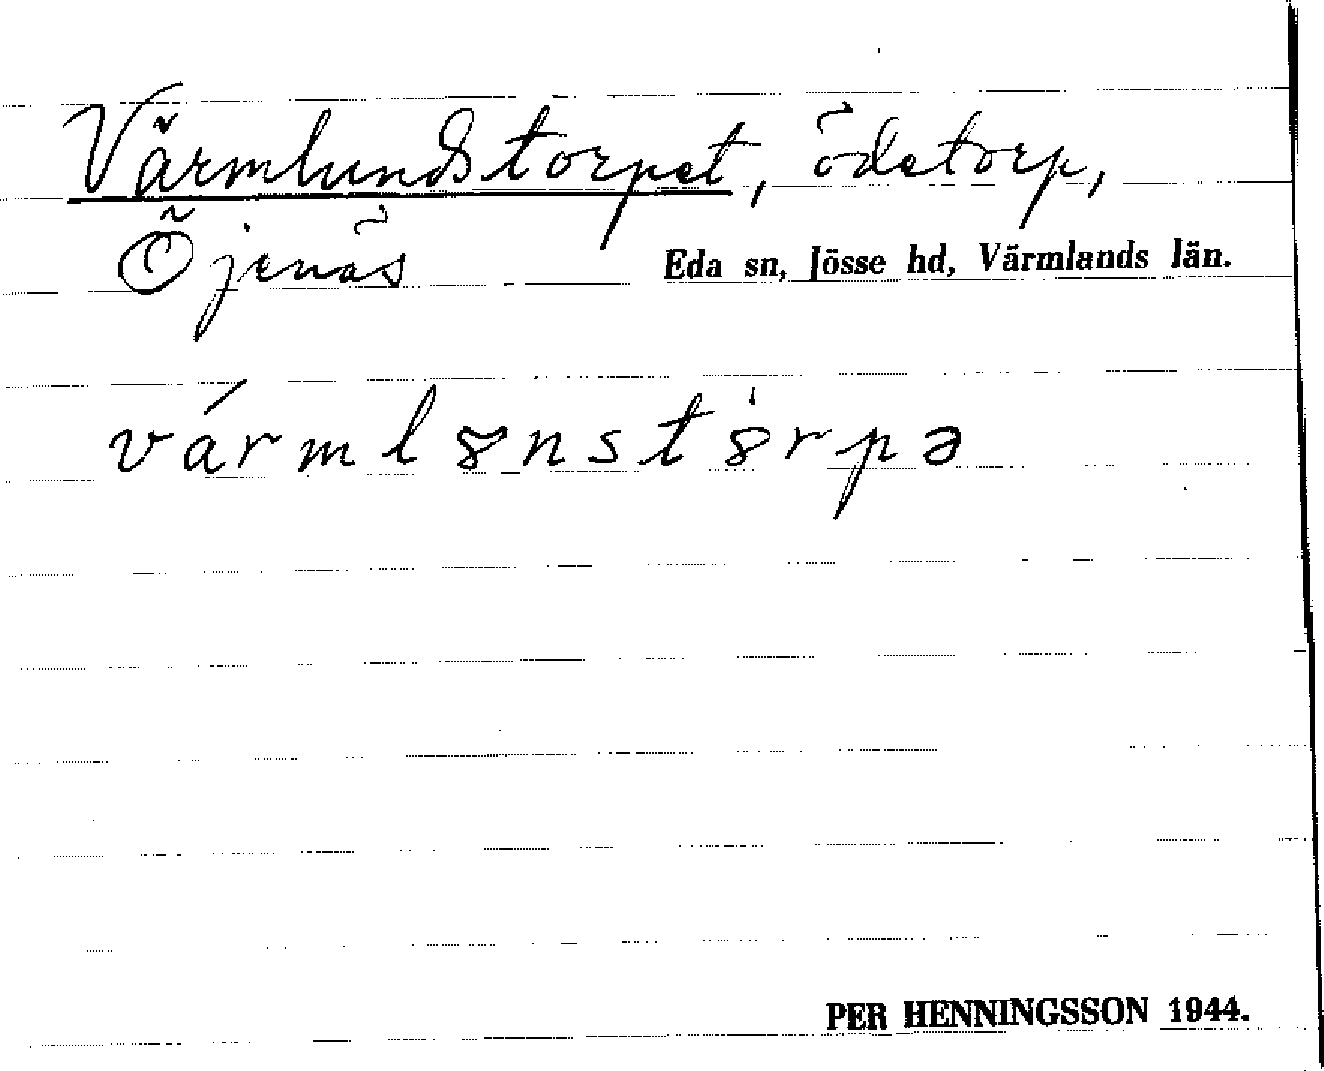 Värmlundstorpet, ödetorp,
Öjenäs Eda sn, Jösse hd, Värmlands län.
vármlȣnstȣ̍rpə
PER HENNINGSSON 1944.